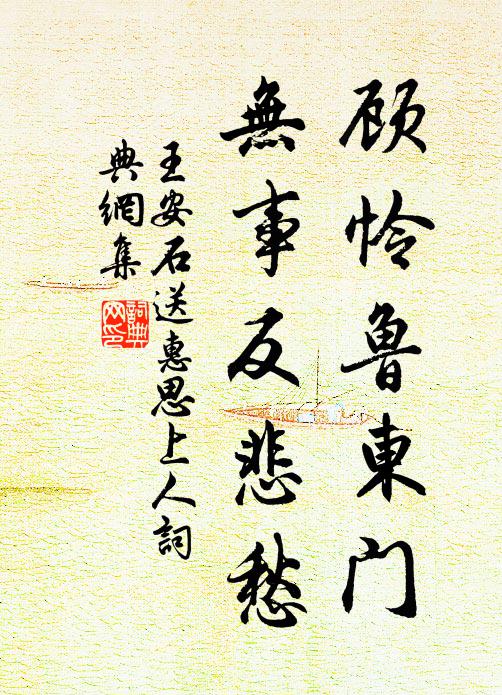 顾怜魯東门
無事反悲愁
王安石送惠思上人詞
典網集
詞典网印